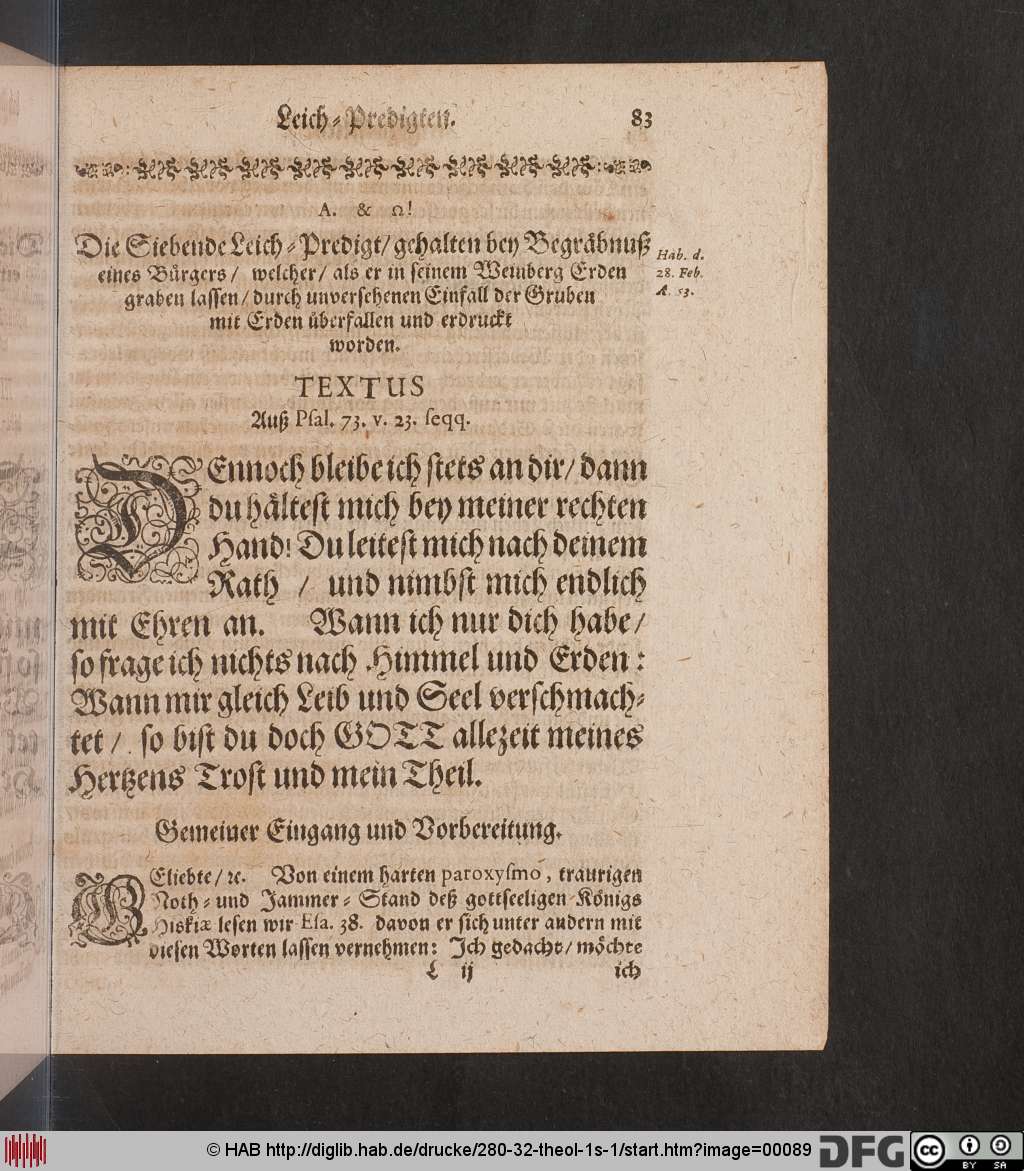 Leich-Predigten. 83
A. & Ω!
Die Siebende Leich-Predigt/ gehalten bey Begräbnuß
eines Bürgers/ welcher/ als er in seinem Weinberg Erden
graben lassen/ durch unversehenen Einfall der Gruben
mit Erden überfallen und erdruckt
worden.
Hab. d.
28. Feb.
Æ. 53.
TEXTUS
Auß Psal. 73. v. 23. seqq.
DEnnoch bleibe ich stets an dir/ dann
du hältest mich bey meiner rechten
Hand! Du leitest mich nach deinem
Rath / und nimbst mich endlich
mit Ehren an. Wann ich nur dich habe/
so frage ich nichts nach Himmel und Erden:
Wann mir gleich Leib und Seel verschmach-
tet/ so bist du doch GOTT allezeit meines
Hertzens Trost und mein Theil.
Gemeiner Eingang und Vorbereitung.
GEliebte/ ꝛc. Von einem harten paroxysmo, traurigen
Noth- und Jammer-Stand deß gottseeligen Königs
Hiskiæ lesen wir Esa. 38. davon er sich unter andern mit
diesen Worten lassen vernehmen: Jch gedacht/ möchte
L ij ich
© HAB http://diglib.hab.de/drucke/280-32-theol-1s-1/start.htm?image=00089 DFG cc BY SA